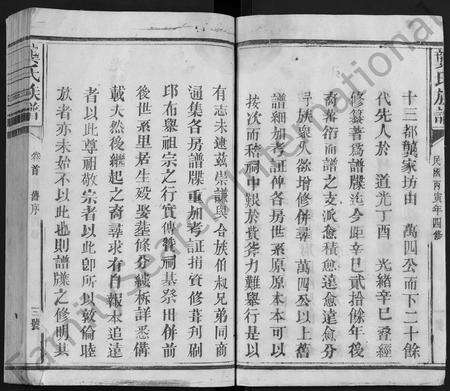 龔氏族譜
民國丙寅年四修
十三都龔家坊由 萬四公而下二十餘
代先人於 道光丁酉 光緒辛巳叠經
修纂著爲譜牒迄今距辛巳貳拾餘年後
裔蕃衍而譜之支派愈積愈遠愈遠愈分
闔族衆人欲增修併尋 萬四公以上舊
譜細加考証俾各房世系原原本本可以
按次而稽祠中艱於貲葊力難舉行是以
有志未逮兹崇謙與合族伯叔兄弟同商
通集各房譜牒重加考証捐資修葺刋刷
邱布 祖宗之行實傳贊祠基祭田併前
後世系里居生殁塋墓條分縷柝詳悉備
載夫然後繼起之裔尋求有自報本追遠
者以此尊祖敬宗者以此卽所以敦倫睦
族者亦未始不以此也則譜牒之修明其
龔氏族譜
卷首 舊序
三號
FamilySearch International